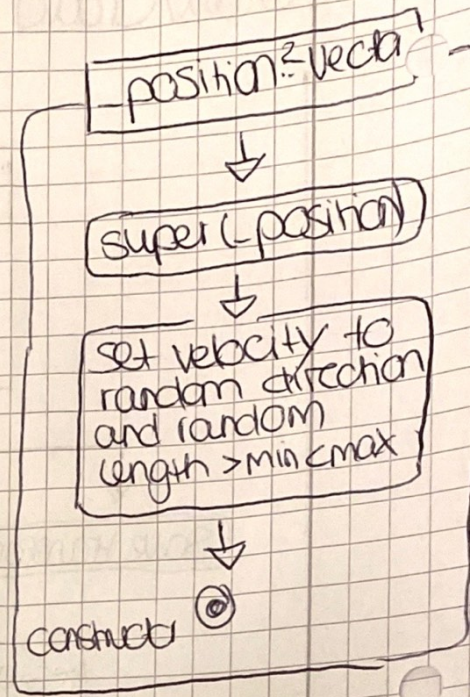 _position?: Vecta
super(_position)
set velocity to
random direction
and random
length >min <max
constructr